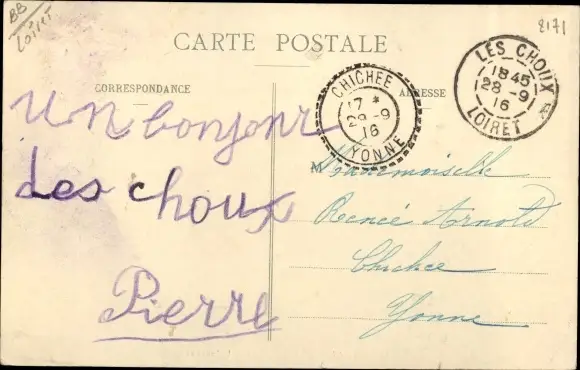 BB
Loiret
8171
CARTE POSTALE
CORRESPONDANCE
ADRESSE
CHICHÉE
17 *
29 -9
16
YONNE
LES CHOUX
18 45
28 -9
16
LOIRET
Un bonjour
des choux
Pierre
M
Mademoiselle
Renée Arnold
Chichée
Yonne